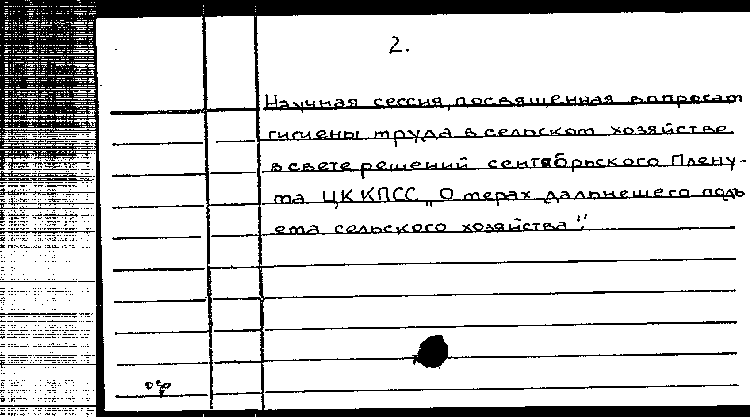 2.
Научная сессия, посвященная вопросам
гигиены труда в сельском хозяйстве
в свете решений сентябрьского Плену-
ма ЦК КПСС „О мерах дальнешего подъ
ема сельского хозяйства".